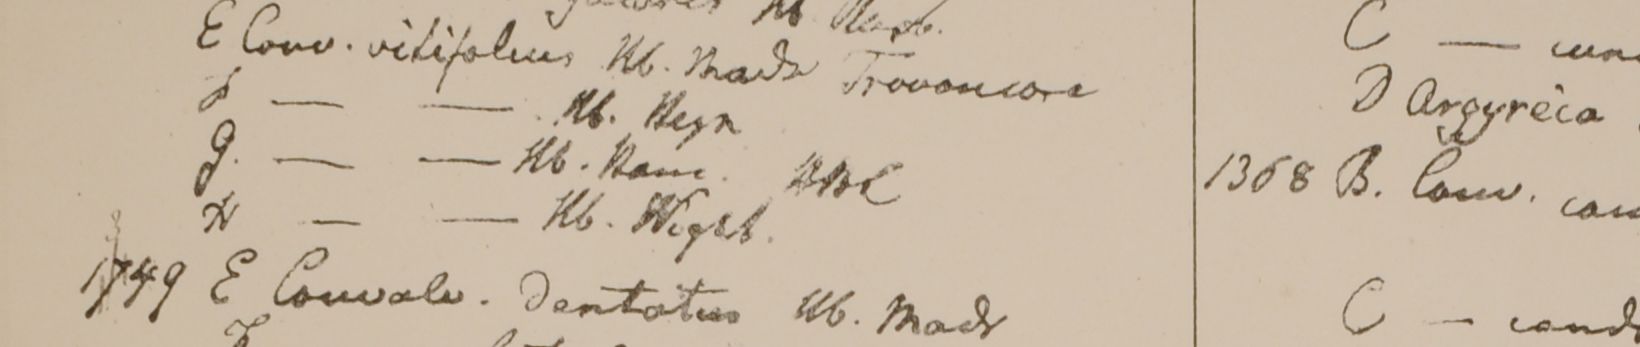 Hb.
E Conv. vitifolius Hb. Mads Travancore
F — — Hb. Heyn
G. — — Hb. Ham. HBC
H — — Hb. Wight.
1349 E Convolv. dentatus Hb. Mads
F
C —
D Argyreia
1368 B. Conv.
C —